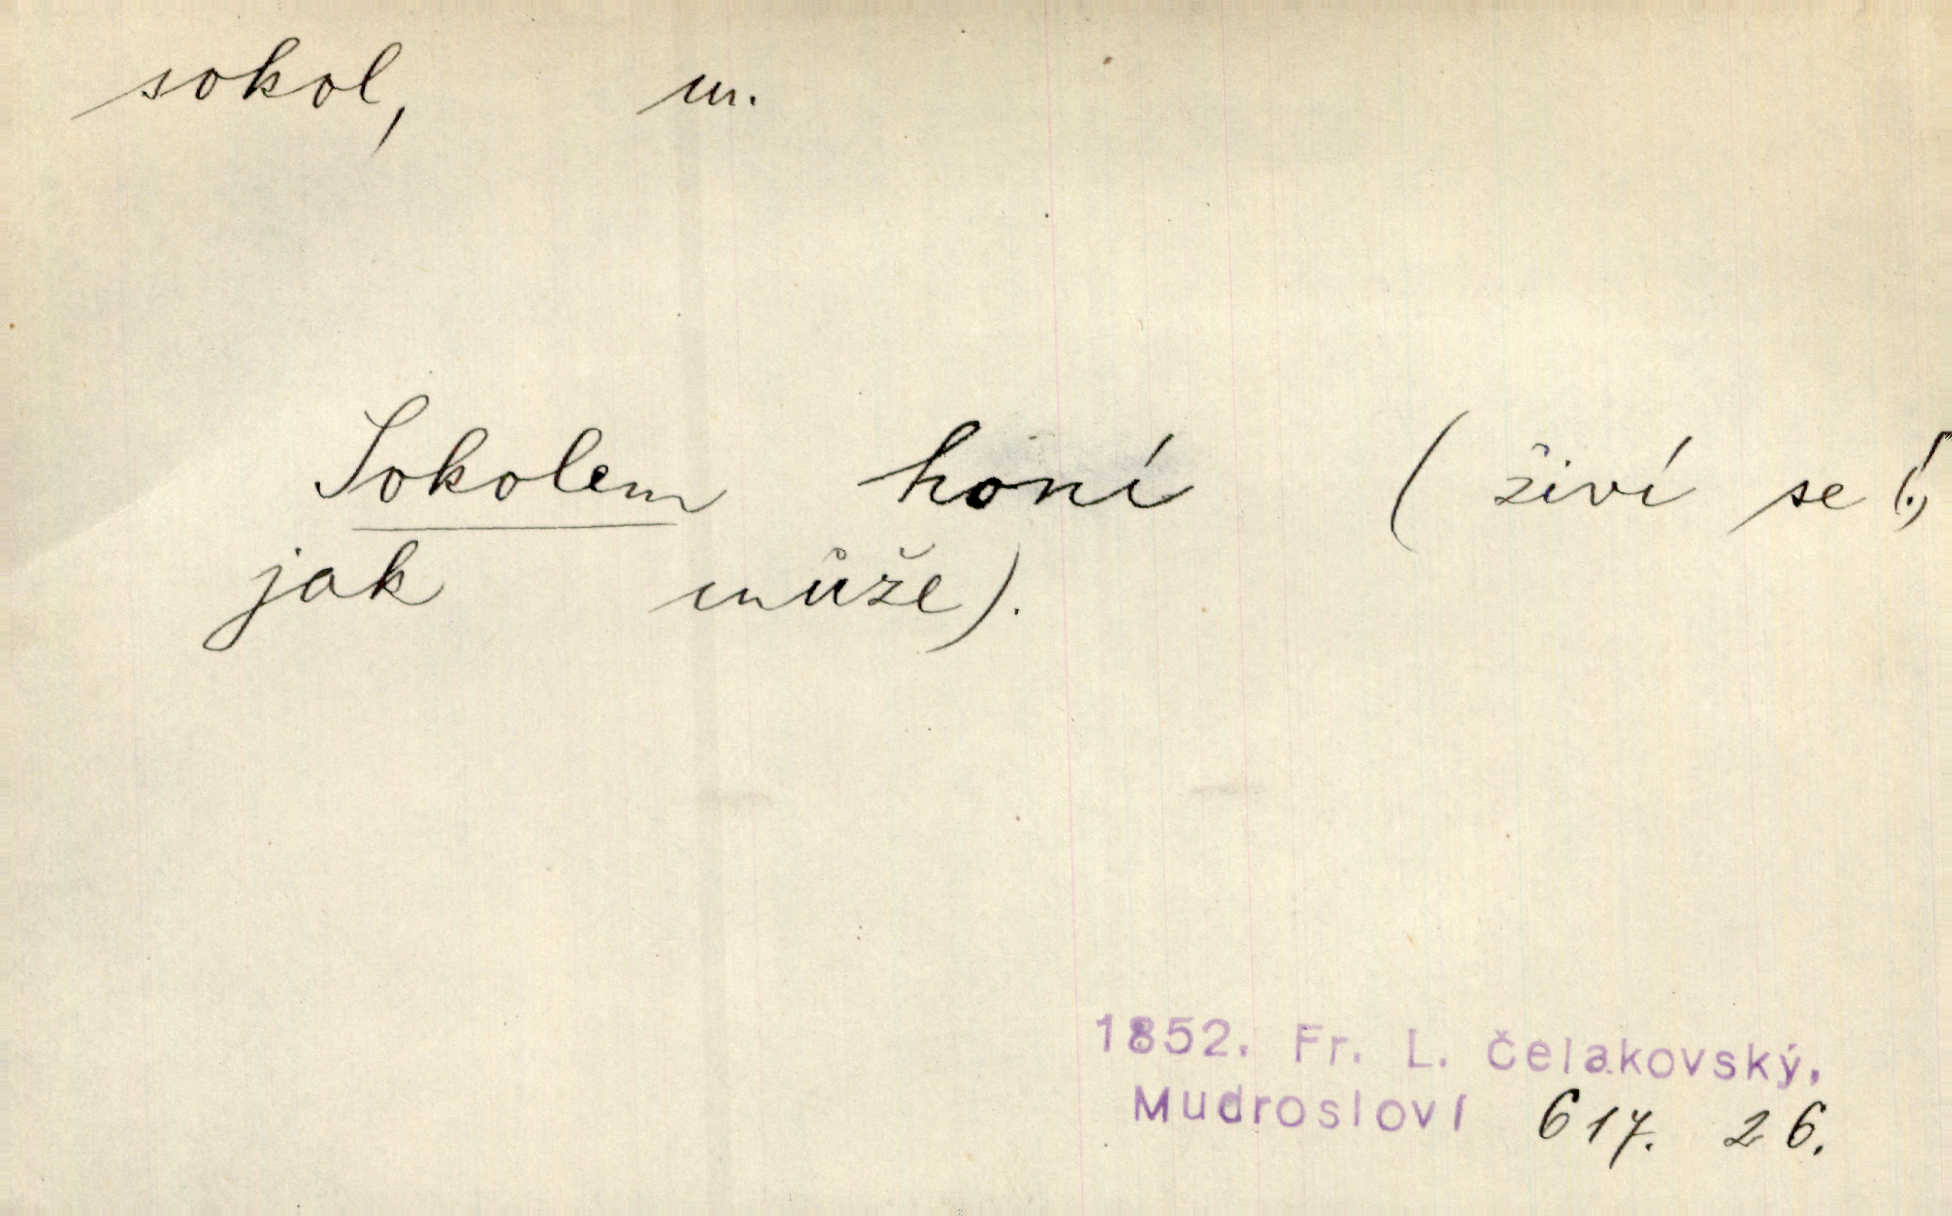 sokol, m.
Sokolem honí (živí se,
jak může).
1852. Fr. L. Čelakovský,
Mudrosloví 617. 26.